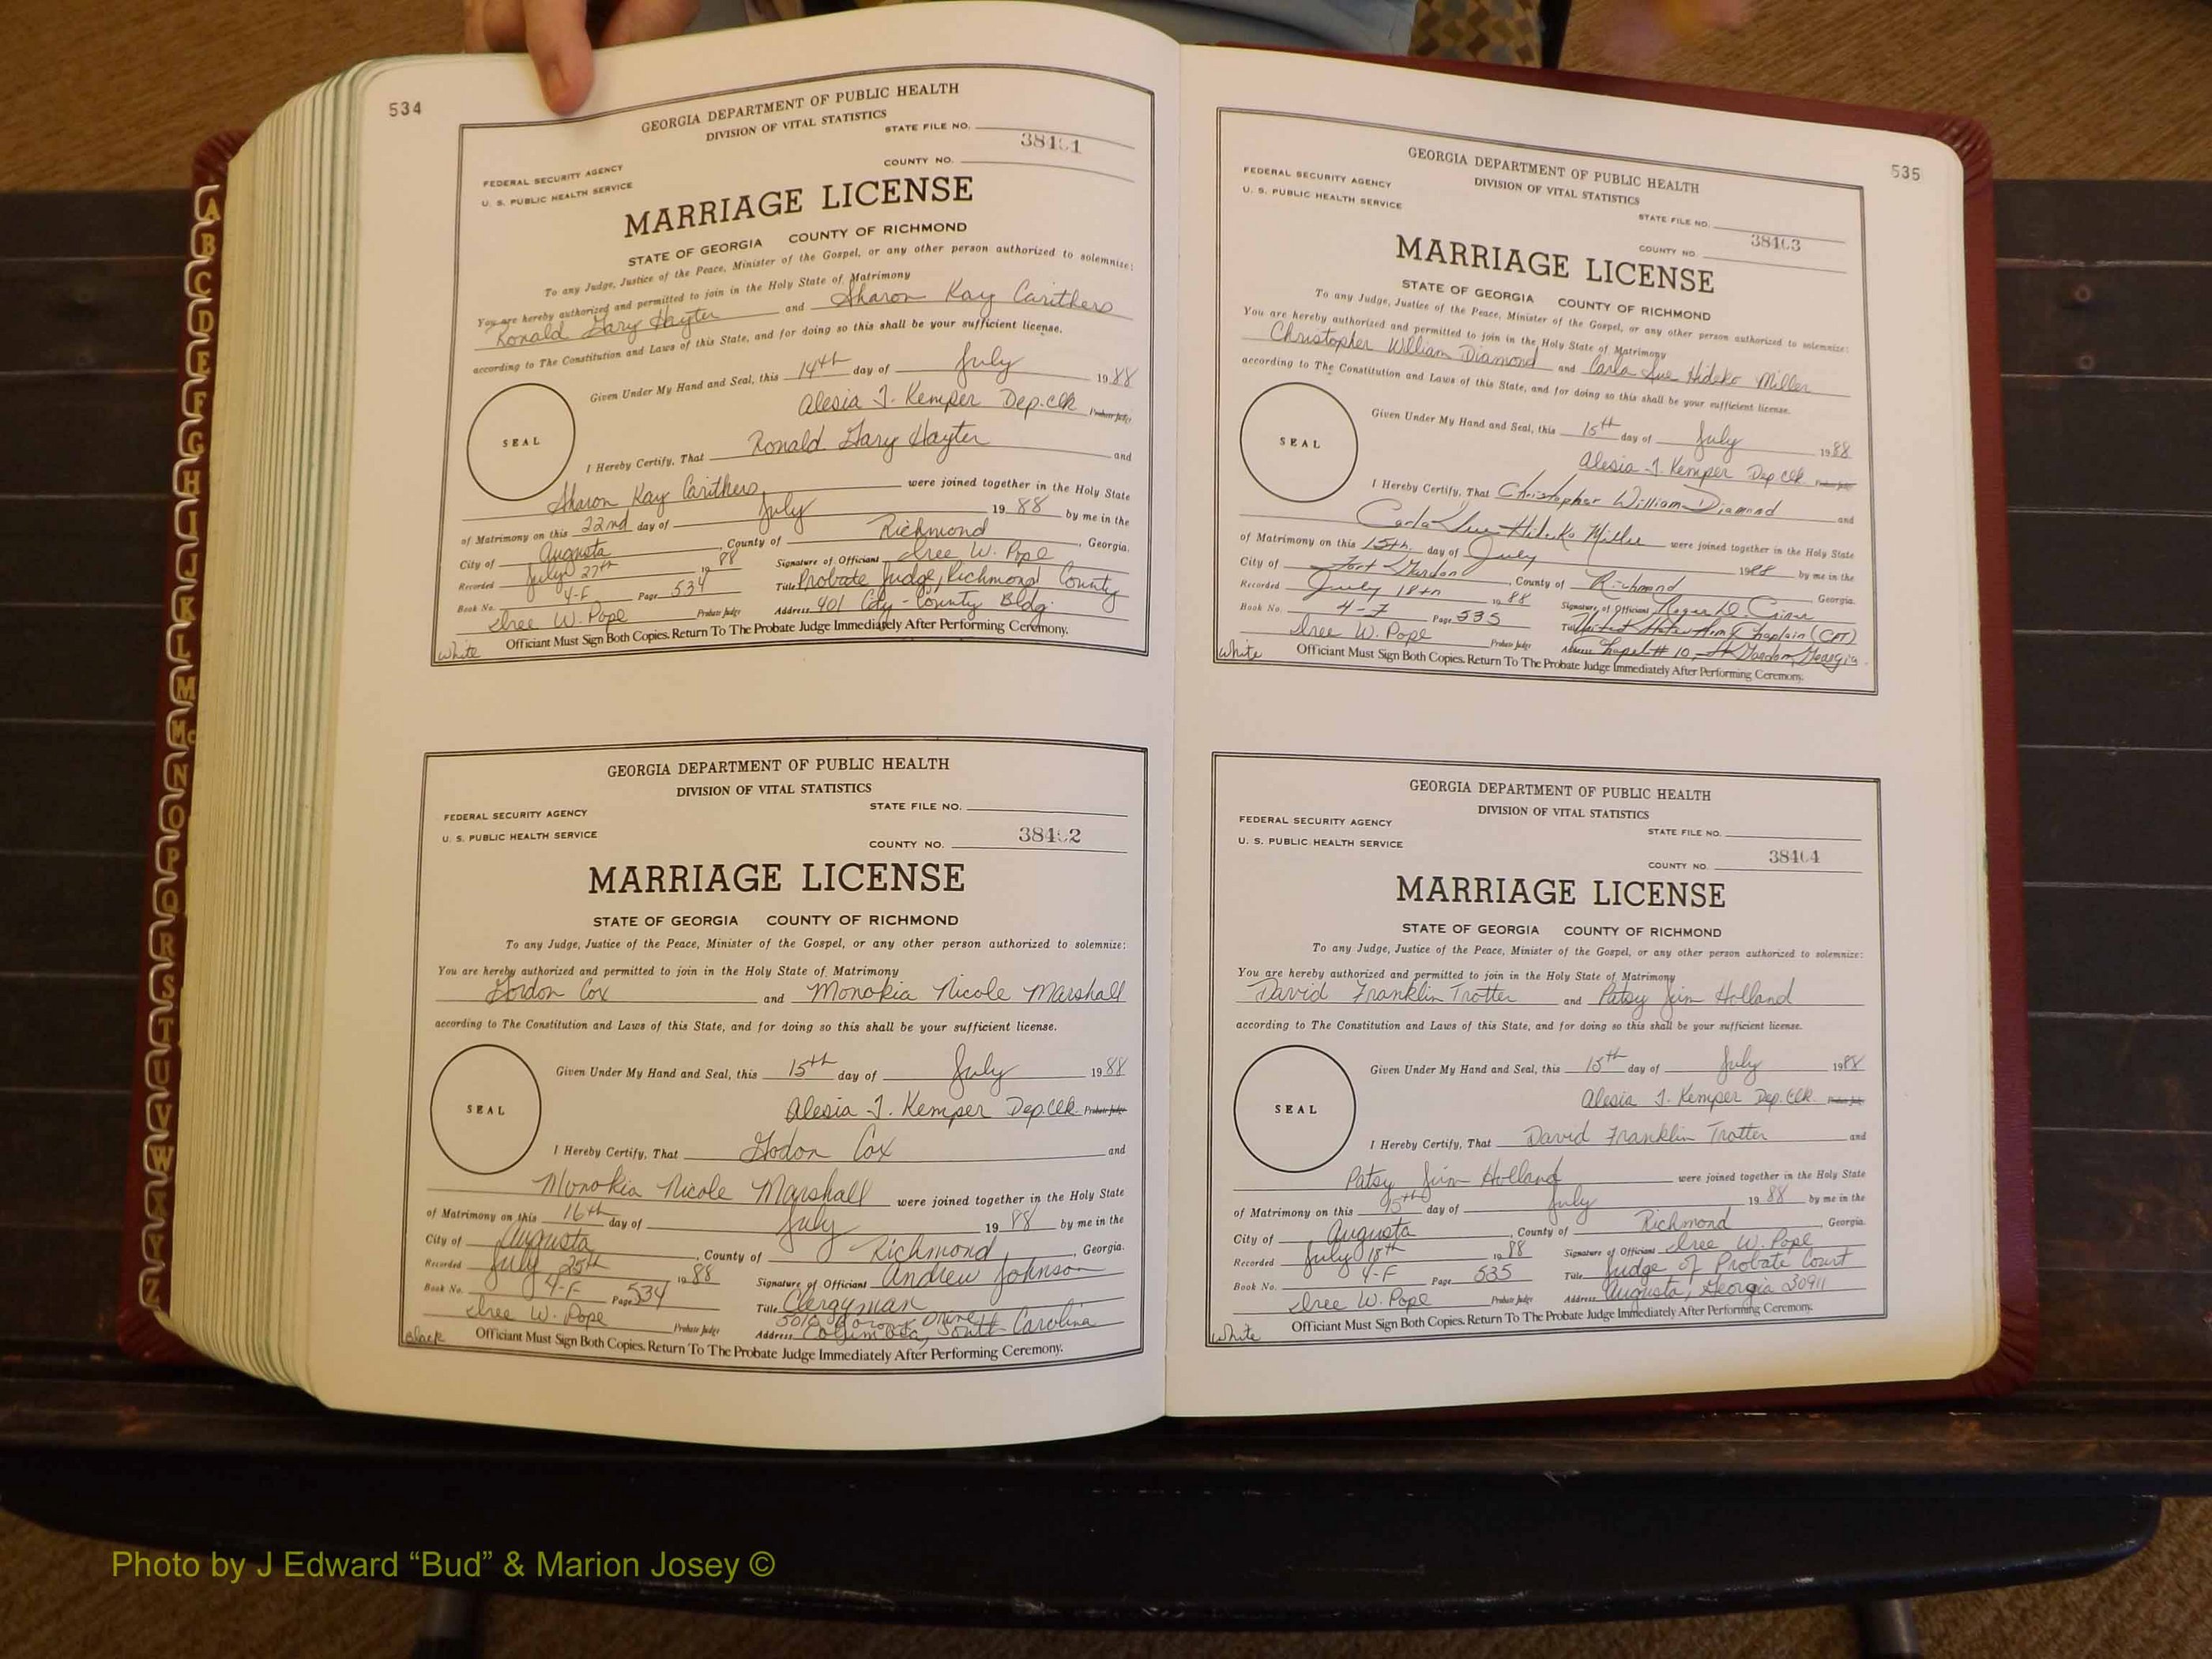 534
GEORGIA DEPARTMENT OF PUBLIC HEALTH
DIVISION OF VITAL STATISTICS
STATE FILE NO.
FEDERAL SECURITY AGENCY
COUNTY NO.
U. S. PUBLIC HEALTH SERVICE
MARRIAGE LICENSE
STATE OF GEORGIA COUNTY OF RICHMOND
To any Judge, Justice of the Peace, Minister of the Gospel, or any other person authorized to solemnize:
You are hereby authorized and permitted to join in the Holy State of Matrimony
Ronald Gary Hayter and Sharon Kay Carithers
according to The Constitution and Laws of this State, and for doing so this shall be your sufficient license.
Given Under My Hand and Seal, this 14th day of July 1988
Alesia J. Kemper Dep.Clk Probate Judge
SEAL
I Hereby Certify, That Ronald Gary Hayter and
Sharon Kay Carithers were joined together in the Holy State
of Matrimony on this 22nd day of July 1988 by me in the
City of Augusta, County of Richmond, Georgia.
Recorded July 27th 1988 Signature of Officiant W. Pope
Book No. 4-F Page 534 Title Probate Judge, Richmond County
W. Pope Probate Judge Address 401 City-County Bldg.
White Officiant Must Sign Both Copies. Return To The Probate Judge Immediately After Performing Ceremony.
GEORGIA DEPARTMENT OF PUBLIC HEALTH
DIVISION OF VITAL STATISTICS
FEDERAL SECURITY AGENCY
STATE FILE NO.
U. S. PUBLIC HEALTH SERVICE
COUNTY NO.
MARRIAGE LICENSE
STATE OF GEORGIA COUNTY OF RICHMOND
To any Judge, Justice of the Peace, Minister of the Gospel, or any other person authorized to solemnize:
You are hereby authorized and permitted to join in the Holy State of Matrimony
Gordon Cox and Monokia Nicole Marshall
according to The Constitution and Laws of this State, and for doing so this shall be your sufficient license.
Given Under My Hand and Seal, this 15th day of July 1988
Alesia J. Kemper Dep.Clk. Probate Judge
SEAL
I Hereby Certify, That Godon Cox and
Monokia Nicole Marshall were joined together in the Holy State
of Matrimony on this 16th day of July 1988 by me in the
City of Augusta, County of Richmond, Georgia.
Recorded July 25th 1988 Signature of Officiant Andrew Johnson
Book No. 4-F Page 534 Title Clergyman
Drive
W. Pope Probate Judge Address South Carolina
Black Officiant Must Sign Both Copies. Return To The Probate Judge Immediately After Performing Ceremony.
535
GEORGIA DEPARTMENT OF PUBLIC HEALTH
DIVISION OF VITAL STATISTICS
FEDERAL SECURITY AGENCY
STATE FILE NO.
U. S. PUBLIC HEALTH SERVICE
COUNTY NO.
MARRIAGE LICENSE
STATE OF GEORGIA COUNTY OF RICHMOND
To any Judge, Justice of the Peace, Minister of the Gospel, or any other person authorized to solemnize:
You are hereby authorized and permitted to join in the Holy State of Matrimony
Christopher William Diamond and Carla Sue Hideko Miller
according to The Constitution and Laws of this State, and for doing so this shall be your sufficient license.
Given Under My Hand and Seal, this 15th day of July 1988
Alesia J. Kemper Dep Clk Probate Judge
SEAL
I Hereby Certify, That Christopher William Diamond and
Carla Sue Hideko Miller were joined together in the Holy State
of Matrimony on this 15th day of July 1988 by me in the
City of Fort Gordon, County of Richmond Georgia.
Recorded July 18th 1988 Signature of Officiant Roger D.
Book No. 4-7 Page 535 Title United States Army Chaplain (CPT)
W. Pope Probate Judge Address Chapel # 10, Ft Gordon, Georgia
White Officiant Must Sign Both Copies. Return To The Probate Judge Immediately After Performing Ceremony.
GEORGIA DEPARTMENT OF PUBLIC HEALTH
DIVISION OF VITAL STATISTICS
FEDERAL SECURITY AGENCY
STATE FILE NO.
U. S. PUBLIC HEALTH SERVICE
COUNTY NO.
MARRIAGE LICENSE
STATE OF GEORGIA COUNTY OF RICHMOND
To any Judge, Justice of the Peace, Minister of the Gospel, or any other person authorized to solemnize:
You are hereby authorized and permitted to join in the Holy State of Matrimony
David Franklin Trotter and Patsy Holland
according to The Constitution and Laws of this State, and for doing so this shall be your sufficient license.
Given Under My Hand and Seal, this 15th day of July 1988
Alesia J. Kemper Dep. Clk. Probate Judge
SEAL
I Hereby Certify, That David Franklin Trotter and
Patsy Holland were joined together in the Holy State
of Matrimony on this day of July 1988 by me in the
City of Augusta, County of Richmond, Georgia.
Recorded July 18th 1988 Signature of Officiant W. Pope
Book No. 4-F Page 535 Title Judge of Probate Court
W. Pope Probate Judge Address Augusta, Georgia 30911
White Officiant Must Sign Both Copies. Return To The Probate Judge Immediately After Performing Ceremony.
A
B
C
D
E
F
G
H
I
J
K
L
M
Mc
N
O
P
Q
R
S
T
U
V
W
X
Y
Z
Photo by J Edward “Bud” & Marion Josey ©